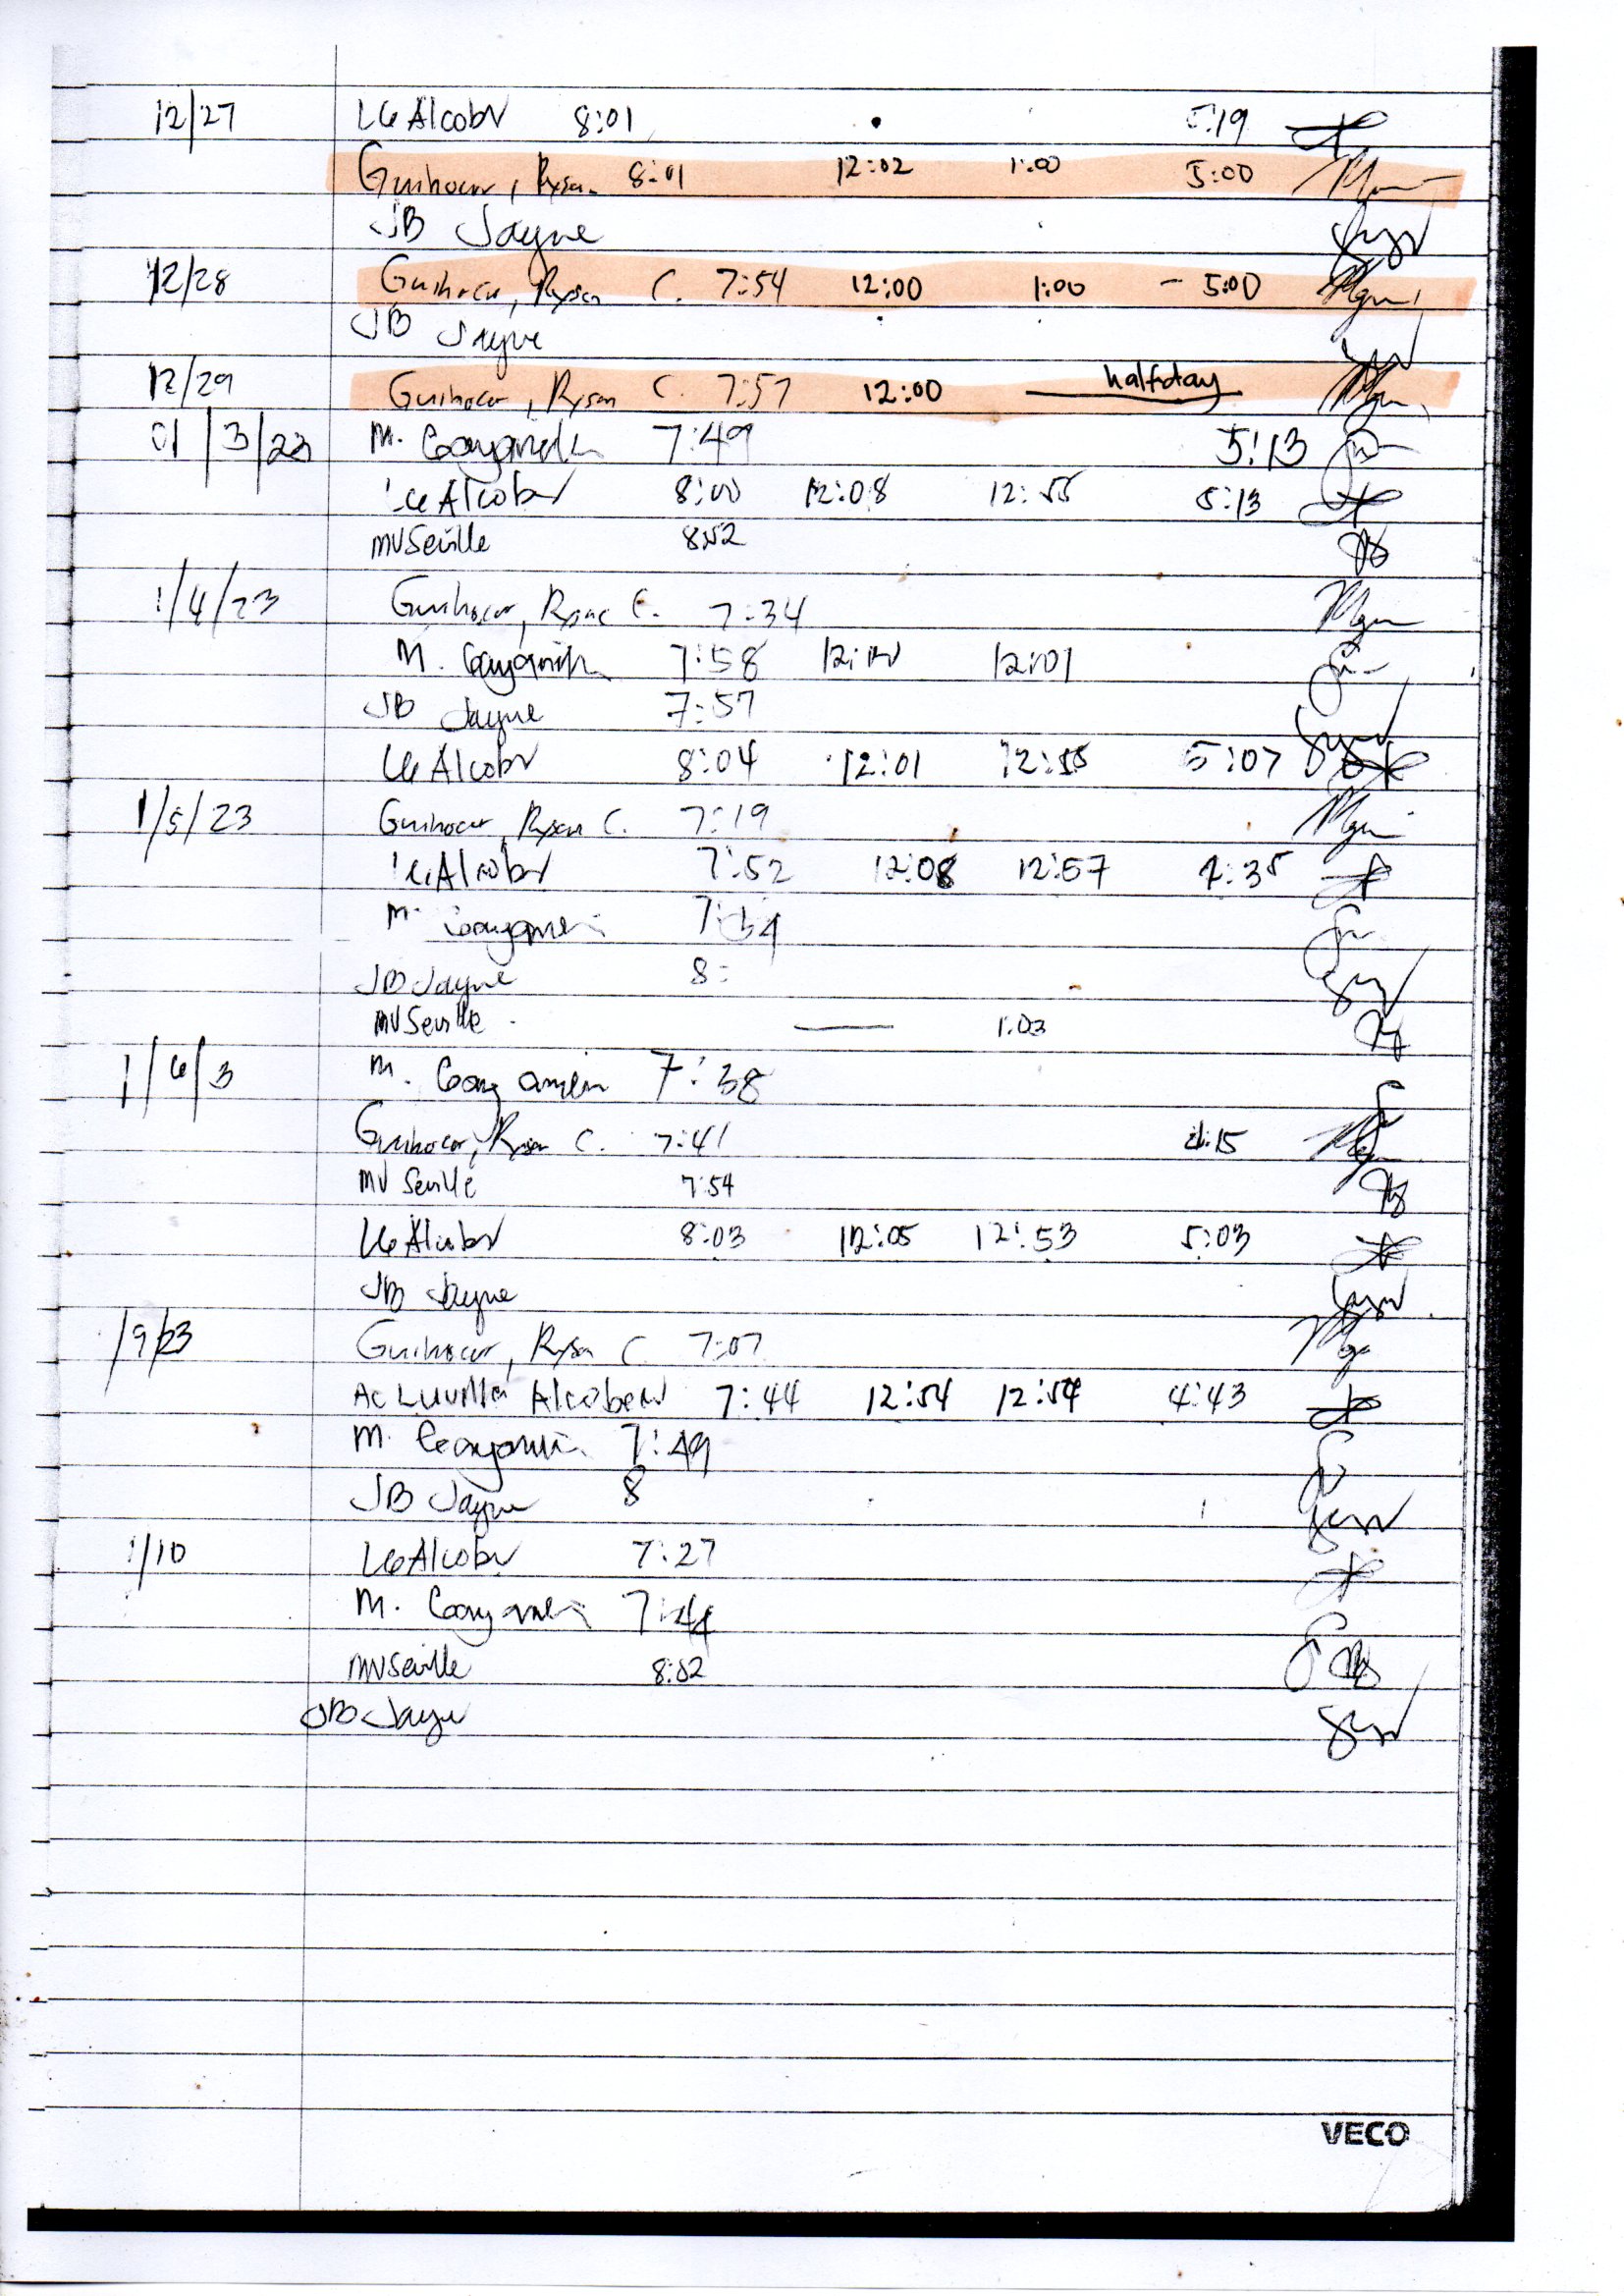 12/27 LG Alcober 8:01 5:19
Guihocor, Ryan 8:01 12:02 1:00 5:00
JB Jayne
12/28 Guihocor, Ryan C. 7:54 12:00 1:00 - 5:00
JB Jayne
12/29 Guihocor, Ryan C. 7:57 12:00 halfday
01/3/23 M. 7:49 5:13
LG Alcober 8:00 12:08 12:55 5:13
MVSeville 8:52
1/4/23 Guihocor, Ryan C. 7:34
M. 7:58 12:01
JB Jayne 7:57
LG Alcober 8:04 12:01 12:55 5:07
1/5/23 Guihocor, Ryan C. 7:19
LG Alcober 7:52 12:08 12:57 4:35
M.
JB Jayne 8:
MVSeville 1:03
1/6/3 M. 7:38
Guihocor, Ryan C. 7:41 4:15
MV Seville 7:54
LG Alcober 8:03 12:05 12:53 5:03
JB Jayne
/9/23 Guihocor, Ryan C 7:07
Alcober 7:44 12:54 12:54 4:43
M. 7:49
JB Jayne 8
1/10 LG Alcober 7:27
M. 7:44
MVSeville 8:02
JB Jayne
VECO